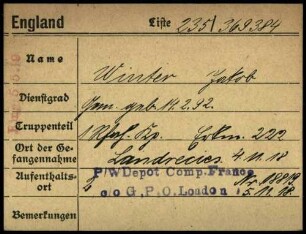 England Liste 235/369384
Name Winter Jakob
Dienstgrad Gem. geb. 14.2.92.
Truppenteil 1 Kp. Erkm. 222
Ort der Ge-
fangennahme Landrecies 4.11.18
Aufenthalts-
ort P/W Depot Comp. France
c/o G.P.O. London 5.11.18
Bemerkungen